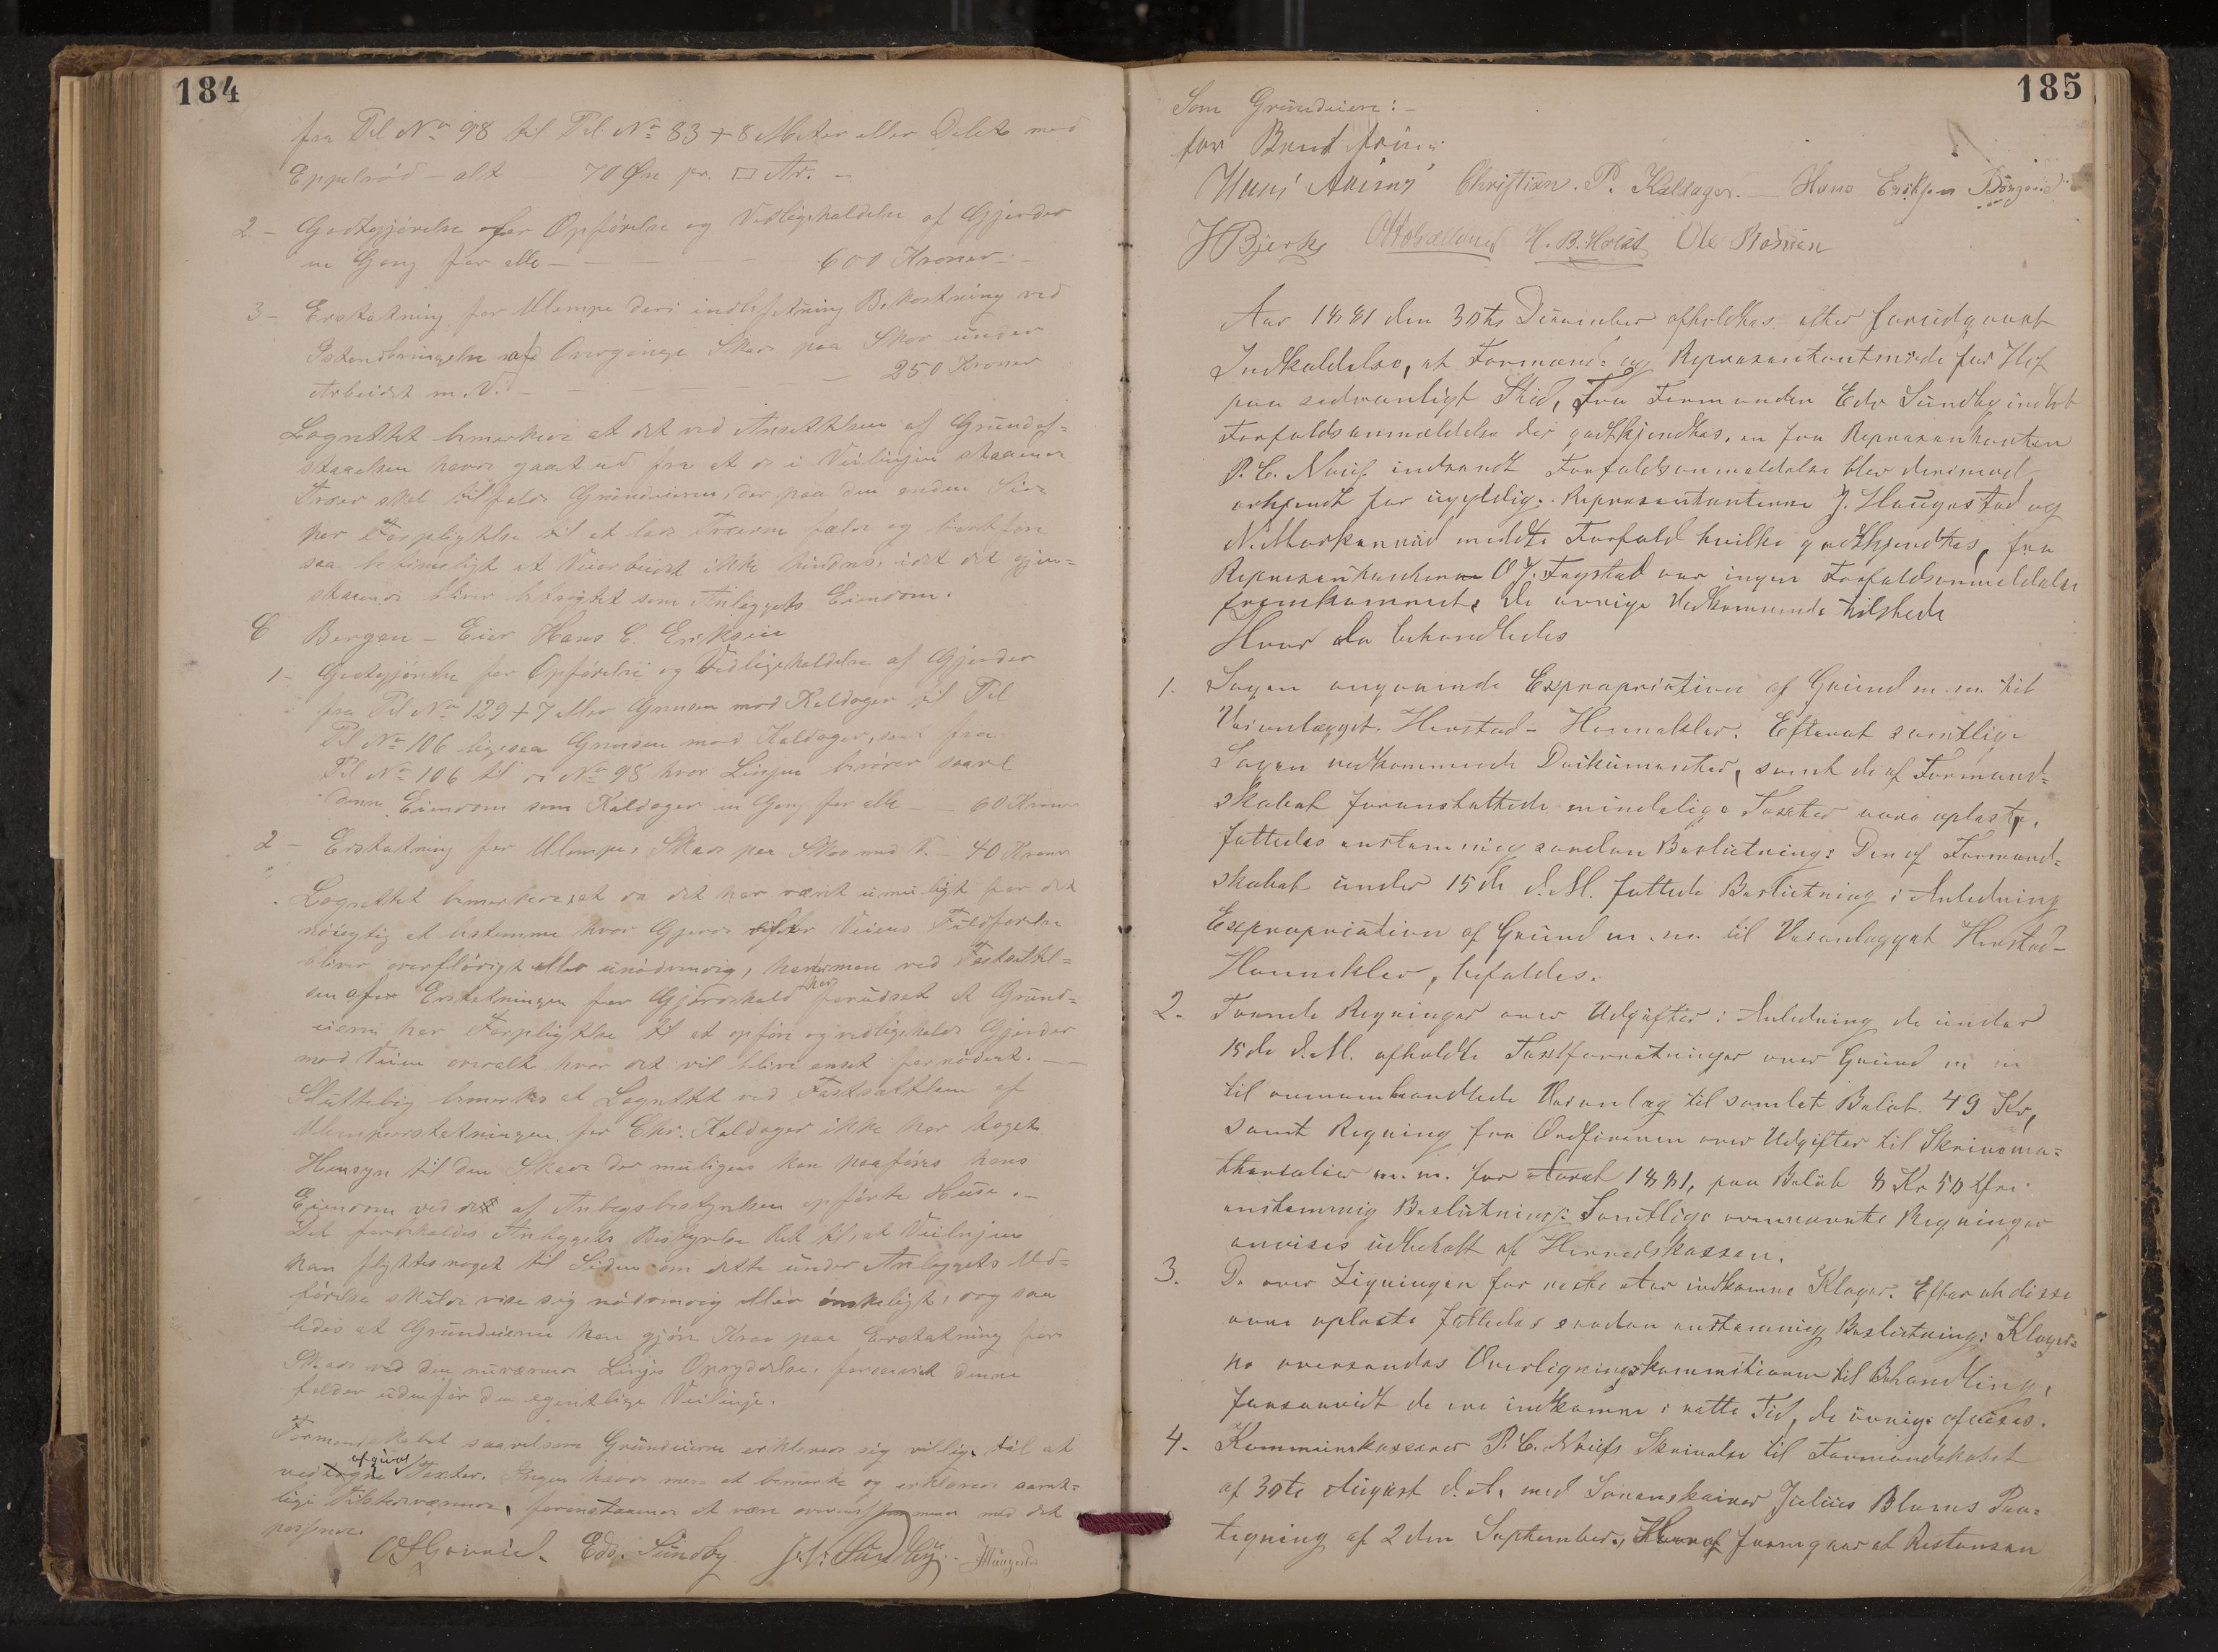 184
fra Pel No 98 til Pel No 83 + 8 Meter eller Delet med
Eppelrød - alt - 70 Øre pr. □ Mr. -
2 - Godtgjörelse for Opförelse og Vedligeholdelse af Gjerder
en Gang for alle - - 600 Kroner -
3 - Erstatning for Ulempe deri indbefattning Bekostning ved
Istandbringelse af Overgange Skade paa Skov under
Arbeidet m. V. - 250 Kroner
Lagrettet bemerkede at det ved Ansættelsen af Grundaf=
staaelsen havde gaaet ud fra at de i Veilinjen staaende
Træer skal tilfalde Grundeierne, der paa den anden Side
har Forpligtelse til at lade Træerne fælde og bortføre
saa betimeligt at Veiarbeidet ikke hindres, idet det gjen=
staaende bliver betragtet som Anlæggets Eiendom.
C Bergan - Eier Hans C. Eriksen
1 - Godtgjörelse for Opförelse og Vedligeholdelse af Gjerder
fra Pel No 129 + 7 eller Grænsen mod Kaldager til Pel
Pel No 106 ligesaa Grænsen mod Kaldager, samt fra
Pel No 106 til No 98 hvor Linjen berører saavel
denne Eiendom som Kaldager en Gang for alle - 60 Kroner
2 - Erstatning for Ulempe, Skade paa Skov med V. - 40 Kroner
Lagrettet bemerkede, at da det har været umuligt for det
nöiagtig at bestemme hvor Gjerde efter Veiens Fuldførelse
bliver overflödigt eller unödvendig, har man ved Fastsættel=
sen af Erstatningen for Gjærdehold forudsat at Grund=
eierne har Forpligtelse til at opføre og vedligeholde Gjerder
mod Veien overalt hvor det vil blive anset fornödent. -
Sluttelig bemerkes at Lagrettet ved Fastsættelsen af
Ulempeerstatningen for Chr. Kaldager ikke har taget
Hensyn til den Skade der muligens kan paaføres hans
Eiendom ved det af Anlægsbestyrelsen opförte Huse. -
Det forbeholdes Anlæggets Bestyrelse Ret til, at Veilinjen
kan flyttes noget til Siden om dette under Anlæggets Ud=
förelse skulde vise sig nödvendig eller önskeligt, dog saa
ledes at Grundeierne kan gjöre Krav paa Erstatning for
Skade ved den nuværende Linjes Oprydelse, forsaavidt denne
falder udenfor den egentlige Veilinje.
Formandskabet saavelsom Grundeierne erklærede sig villige til at
vedtage afgivne Taxter. Ingen havde mere at bemerke og erklærede samt=
lige Tilstedeværende, foranstaaende at være overensstemmende med det
passerede.
Edv. Sundby
185
Som Grundeiere: -
for Bernt
Christian. P. Kaldager. - Hans Eriksen
H Bjerke H. B. Holst Ole
Aar 1881 den 30te December afholdtes efter forudgaaet
Indkaldelse, et Formand= og Repræsentantmöde for Hof
paa sedvanligt Sted, Fra Formanden Edv Sundby indlöb
Forfaldsanmældelse der godtkjendtes, en fra Repræsentanten
P. C. indsendt Forfaldsanmældelse blev derimod
erkjendt for ugyldig. Repræsentanterne J. Haugestad og
N. meldte Forfald hvilke godtkjendtes, fra
Repræsentanterne O J. Fogstad var ingen Forfaldsanmeldelse
fremkommet, de øvrige Vedkommende tilstede
Hvor da behandledes
1. Sagen angaaende Expropriation af Grund m. m. til
Veianlægget Herstad - Hanneklev. Efterat samtlige
Sagen vedkommende Dokumenter, samt de af Formand=
skabet foranstaltede mindelige Taxter vare oplæste,
fattedes enstemmig saadan Beslutning: Den af Formand=
skabet under 15de d. M. fattede Beslutning i Anledning
Expropriation af Grund m. m. til Veianlægget Herstad -
Hanneklev, bifaldes.
2. Tvende Regninger over Udgifter i Anledning de under
15de d. M. afholdte Taxtforretninger over Grund m m
til ovenomhandlede Veianlæg til samlet Beløb 49 Kr,
samt Regning fra Ordföreren over Udgifter til Skrivema=
therialier m. m. for Aaret 1881, paa Belöb 8 Kr 50 Öre
enstemmig Beslutning: Samtlige ovennævnte Regninger
anvises udbetalt af Herredskassen.
3. De over Ligningen for næste Aar indkomne Klager. Efter at disse
vare oplæste fattedes saadan enstemmig Beslutning: Klager=
ne oversendes Overligningskommisionen til Behandling,
forsaavidt de ere indkomne i rette Tid, de övrige afvises.
4. Kommunekasserer P. C. Skrivelse til Formandskabet
af 30te August d. A. med Sorenskriver Julius Blums Paa=
tegning af 2den September, Hvoraf fremgaar at Restansen